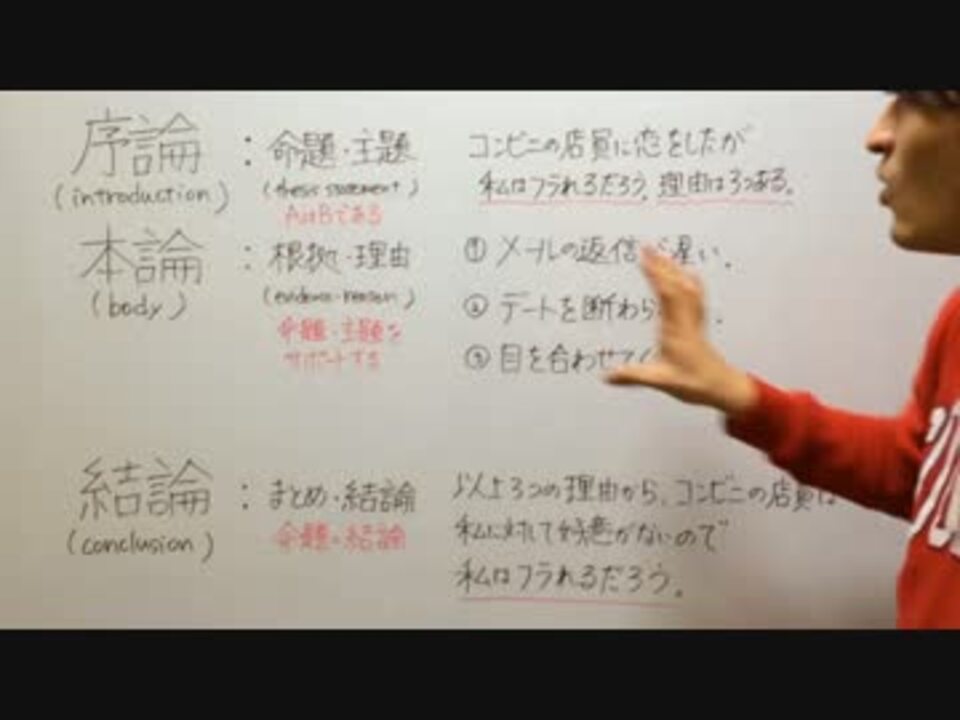 序論 : 命題・主題 コンビニの店員に恋をしたが
(introduction) (thesis statement) 私はフラれるだろう。理由は3つある。
AはBである
本論 : 根拠・理由 ① メールの返信 遅い。
(body) (evidence・reason) ② デートを断わら
命題・主題を
サポートする ③ 目を合わせて
結論 : まとめ・結論 以上3つの理由から、コンビニの店員は
(conclusion) 命題=結論 私に対して好意がないので
私はフラれるだろう。